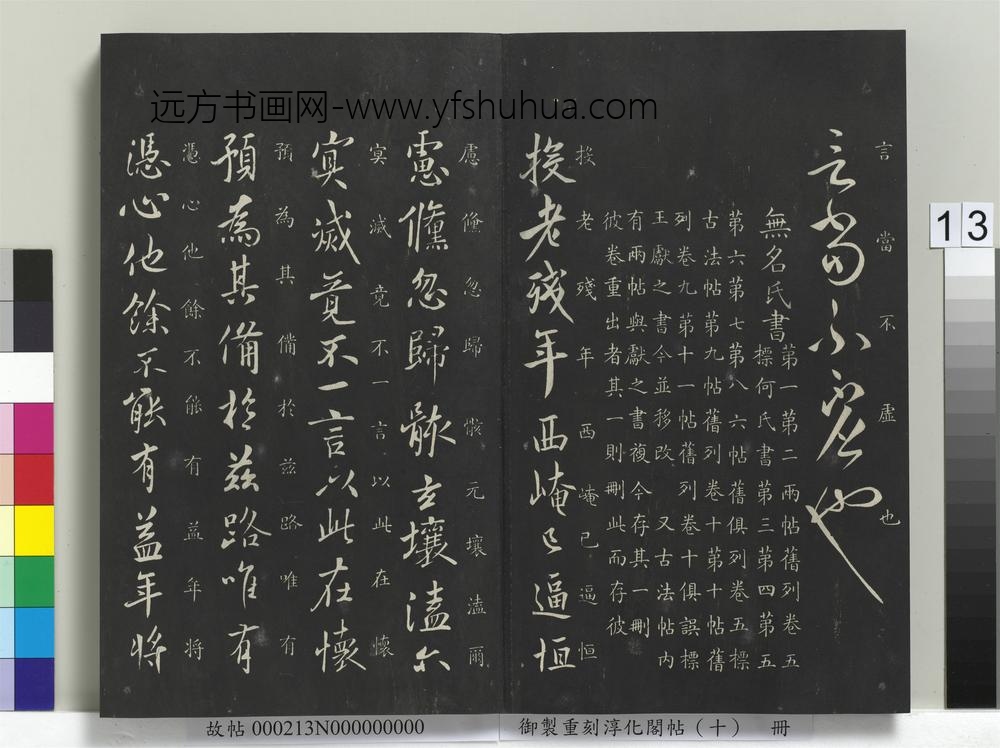 远方书画网-www.yfshuhua.com
言當不虛也
言當不虛也
無名氏書
第一第二兩帖舊列卷五
標何氏書第三第四第五
第六第七第八六帖舊俱列卷五標
古法帖第九帖舊列卷十第十帖舊
列卷九第十一帖舊列卷十俱誤標
王獻之書今並移改 又古法帖內
有兩帖與獻之書複今存其一刪
彼卷重出者其一則刪此而存彼
投老殘年西崦已逼恒
投老殘年西崦已逼恒
慮儵忽歸骸元壤溘爾
慮儵忽歸骸玄壤溘尒
冥滅竟不一言以此在懷
冥滅竟不一言以此在懷
預為其備於茲路唯有
預為其備於茲路唯有
憑心他餘不能有益年將
憑心他餘不能有益年將
13
故帖 000213N000000000
御製重刻淳化閣帖（十） 冊